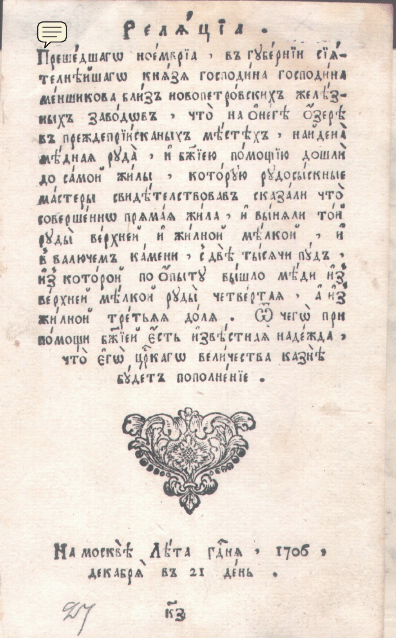 Реля́цїа .
Преше́дшагѡ ноемврїа , въ гꙋбе́рнїи сїѧ́-
телнѣ́ишагѡ кнѧ́зѧ господи́на господи́на
ме́ншикова бли́зъ новопетро́вскихъ желѣ́з-
ныхъ заво́дѡвъ , что̀ на ѻ҆не́гѣ ѻ҆́зерѣ
въ преждепрїи́сканыхъ мѣ́стѣхъ , на́идена
мѣ́днаѧ рꙋда̀ , и҆ бж҃їею по́мощїю дошлѝ
до са́мой жи́лы , котѡ́рꙋю рꙋдосы́скные
ма́стеры свидѣ́телствовавъ сказа́ли что̀
соверше́ннѡ прѧма́ѧ жи́ла , и҆ вы́нѧли то́й
рꙋды̀ ве́рхней и҆ жи́лной ме́лкой , и҆
в валю́чемъ ка́мени , с двѣ̀ ты́сѧчи пꙋ́дъ ,
и҆з̾ кото́рой по ѻ҆́пытꙋ вы́шло мѣ́ди и҆з̾
ве́рхней ме́лкой рꙋды̀ четве́ртаѧ , а҆ и҆з̾
жи́лной тре́тьѧѧ до́лѧ . Ѿ чегѡ̀ при
по́мощи бж҃їей є҆́сть и҆звѣ́стнаѧ наде́жда ,
что̀ є҆гѡ̀ цр҃кагѡ вели́чества казнѣ̀
бꙋ́детъ пополне́нїе .
На москвѣ̀ Лѣ́та гдⷭ҇нѧ , 1706 ,
декабрѧ̀ въ 21 де́нь .
27
к҃з